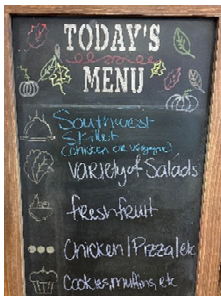 TODAY'S
MENU
Southwest
Skillet
(Chicken or veggie)
Variety of Salads
fresh fruit
Chicken/Pizza/etc
Cookies, muffins, etc